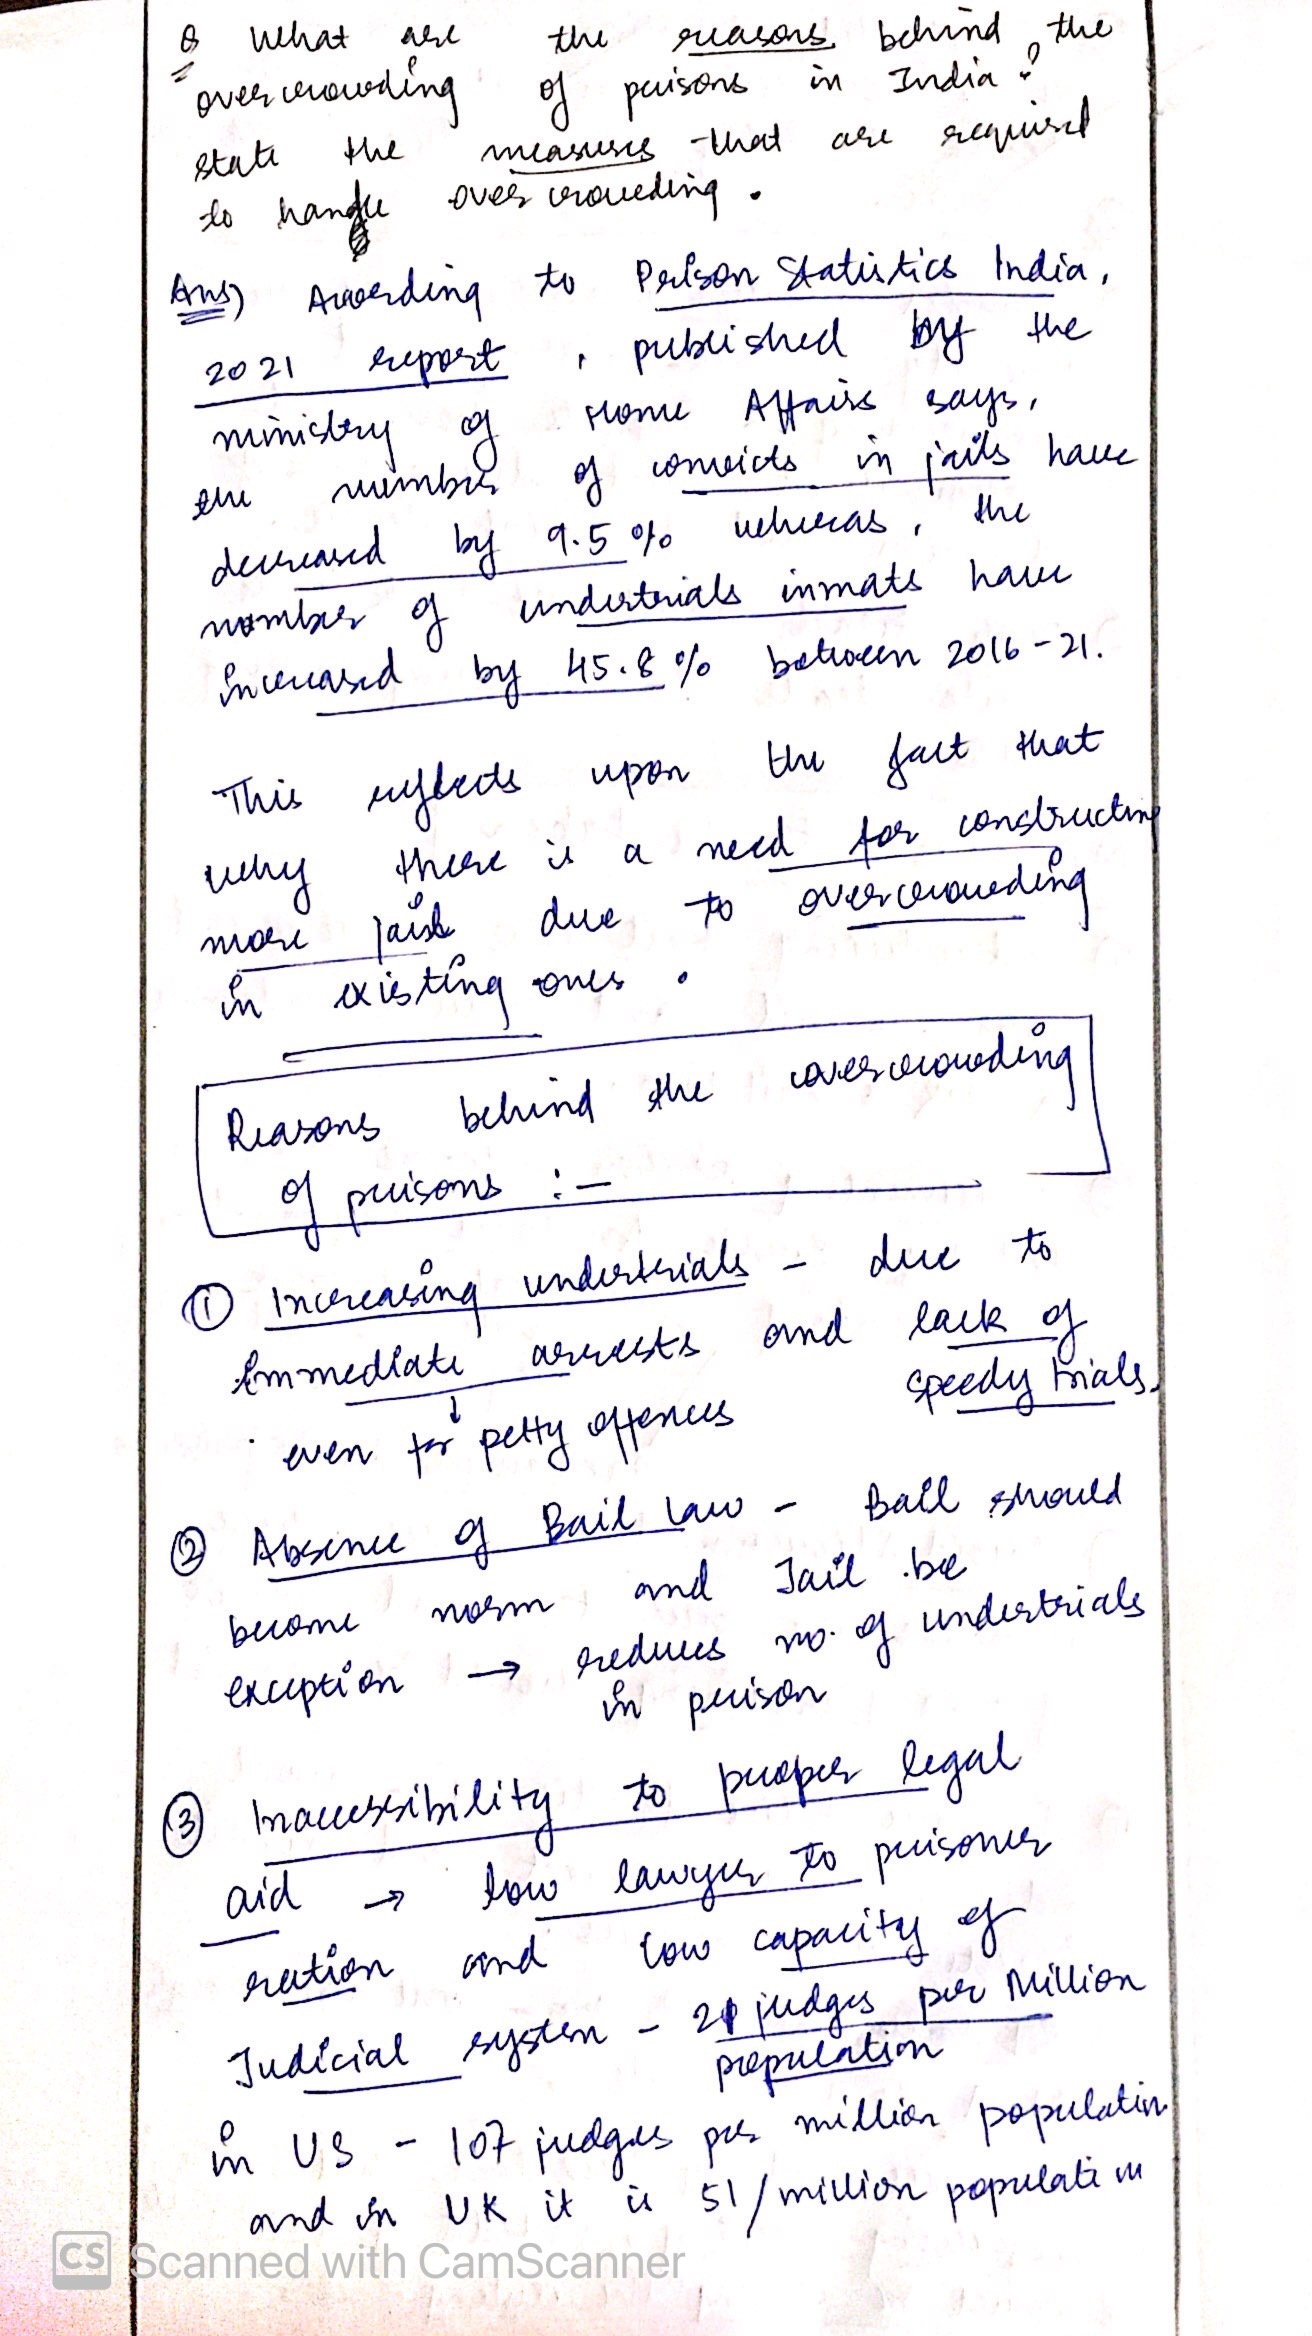 Q What are the reasons behind the
overcrowding of prisons in India?
State the measures that are required
to handle overcrowding.
Ans) According to Prison Statistics India,
2021 report, published by the
ministry of Home Affairs says,
the number of convicts in jails have
decreased by 9.5% whereas, the
number of undertrials inmats have
increased by 45.8% between 2016-21.
This reflects upon the fact that
why there is a need for constructing
more jails due to overcrowding
in existing ones.
Reasons behind the overcrowding
of prisons :-
① Increasing undertrials - due to
immediate arrests and lack of
speedy trials.
↓
even for petty offences
② Absence of Bail Law - Bail should
become norm and Jail be
exception → reduces no. of undertrials
in prison
③ Inaccessibility to proper legal
aid → low lawyer to prisoner
ration and low capacity of
Judicial system - 21 judges per Million
population
in US - 107 judges per million population
and in UK it is 51/million population
CS Scanned with CamScanner